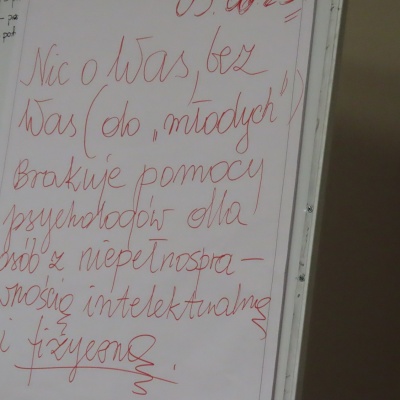 Nic o Was, bez
Was (do "młodych")
Brakuje pomocy
psychologów dla
osób z niepełnospra-
wnością intelektualną
i fizyczną.